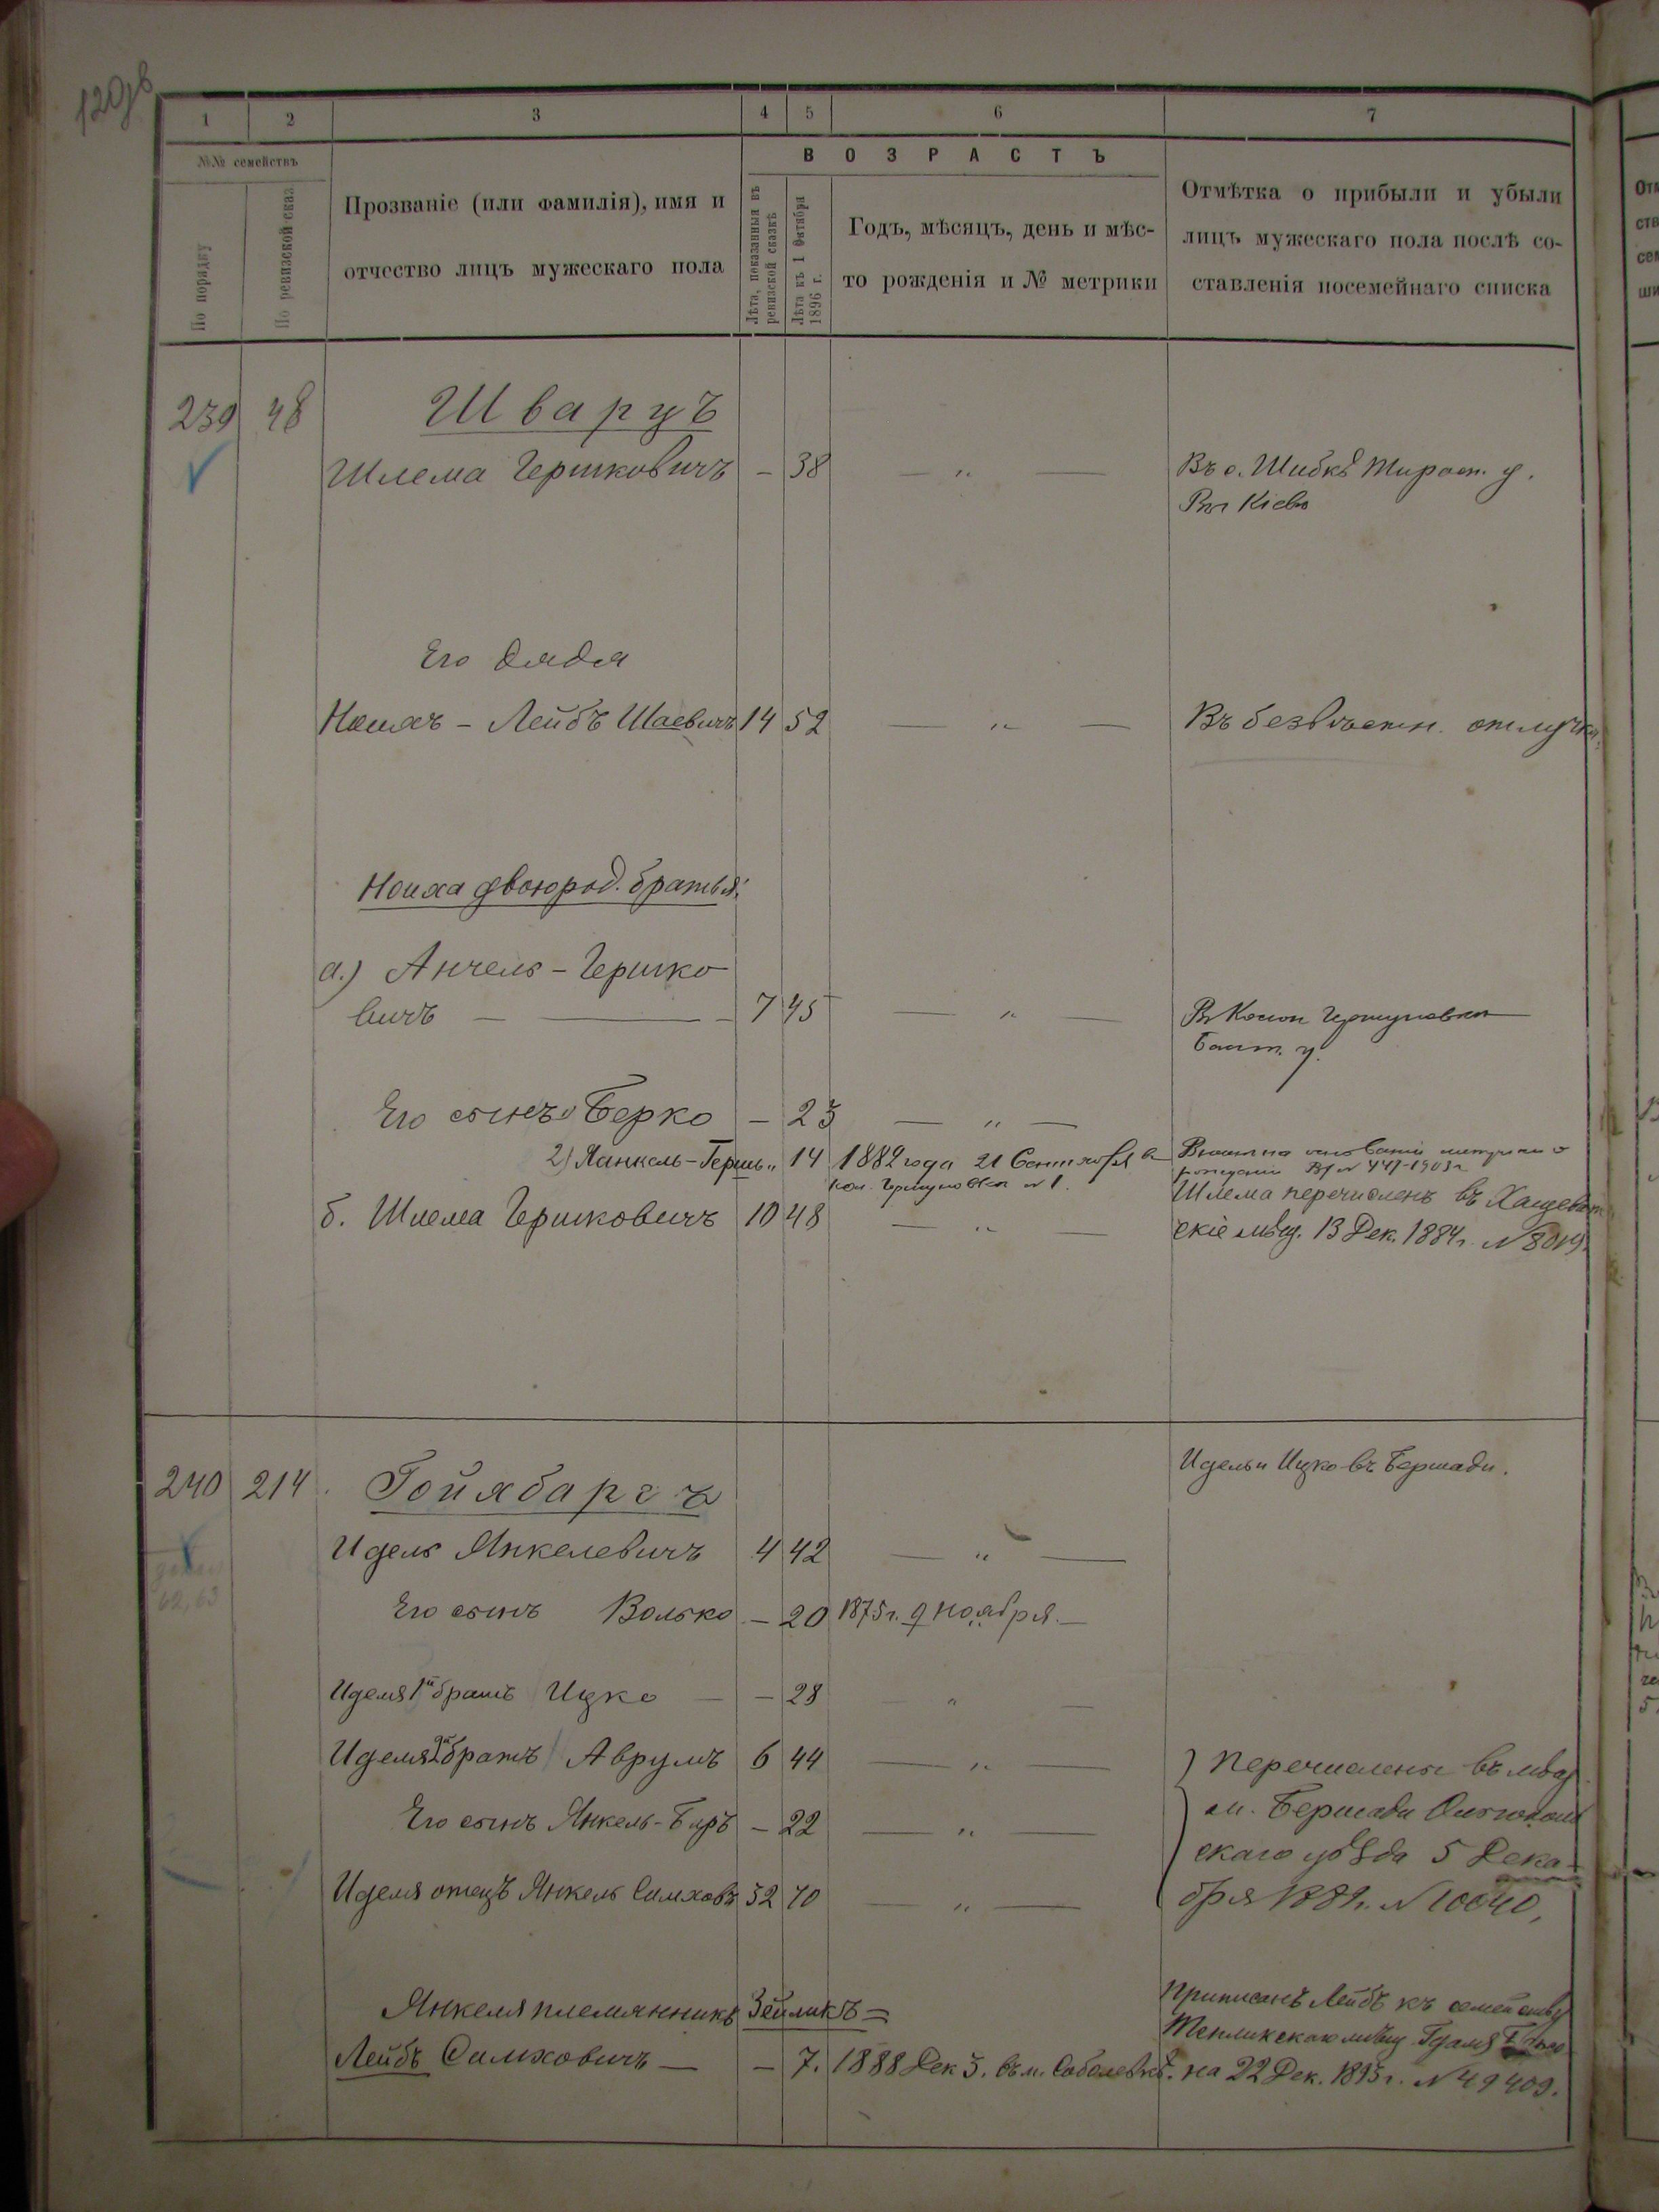 120об
1 2 3 4 5 6 7
№№ семействъ
По порядку
По ревизской сказ
Прозваніе (или фамилія), имя и
отчество лицъ мужескаго пола
ВОЗРАСТЪ
Лѣта, показанныя въ
ревизской сказкѣ
Лѣта къ 1 Октября
1896 г.
Годъ, мѣсяцъ, день и мѣс-
то рожденія и № метрики
Отмѣтка о прибыли и убыли
лицъ мужескаго пола послѣ со-
ставленія посемейнаго списка
239 48 Шварцъ
Шлема Гершковичъ – 38 — „ — Въ с. Шибкѣ Тирасп. у.
Въ Кіевѣ
Его дядя
Ноихъ – Лейбъ Шаевичъ 14 52 — „ — Въ безвѣстн. отлучкѣ.
Ноиха двоюрод. братья:
а.) Анчель – Гершко
вичъ — 7 45 — „ — Въ
Его сынъ Берко – 23 — „ —
2) Янкель–Гершъ „ 14 1882 года 21 Сентября въ на основаніи метрики о
кол. № 1. рожденіи
б. Шлема Гершковичъ 10 48 — „ — Шлема перечисленъ въ Хащеват
скіе мѣщ. 13 Дек. 1884 г. № 8019.
240 214. Гойхбаргъ Идель и Ицко въ Бершади.
Идель Янкелевичъ 4 42 — „ —
62, 63
Его сынъ Волько – 20 1875 г. 9 ноября. —
Иделя 1й братъ Ицко — – 28 — „ —
Иделя 2й братъ Аврумъ 6 44 — „ — Перечислены въ мѣщ.
Его сынъ Янкель-Беръ – 22 — „ — м. Бершади Ольгополь
скаго уѣзда 5 Дека-
Иделя отецъ Янкель Симхов. 32 70 — „ — бря № 10040,
Янкеля племянникъ Зейликъ = Приписанъ Лейбъ къ семейству
Тепликскаго мѣщ.
Лейбъ Симховичъ — – 7. 1888 Дек 3. въ м. Соболевкѣ. на 22 Дек. 1895 г. № 49409.